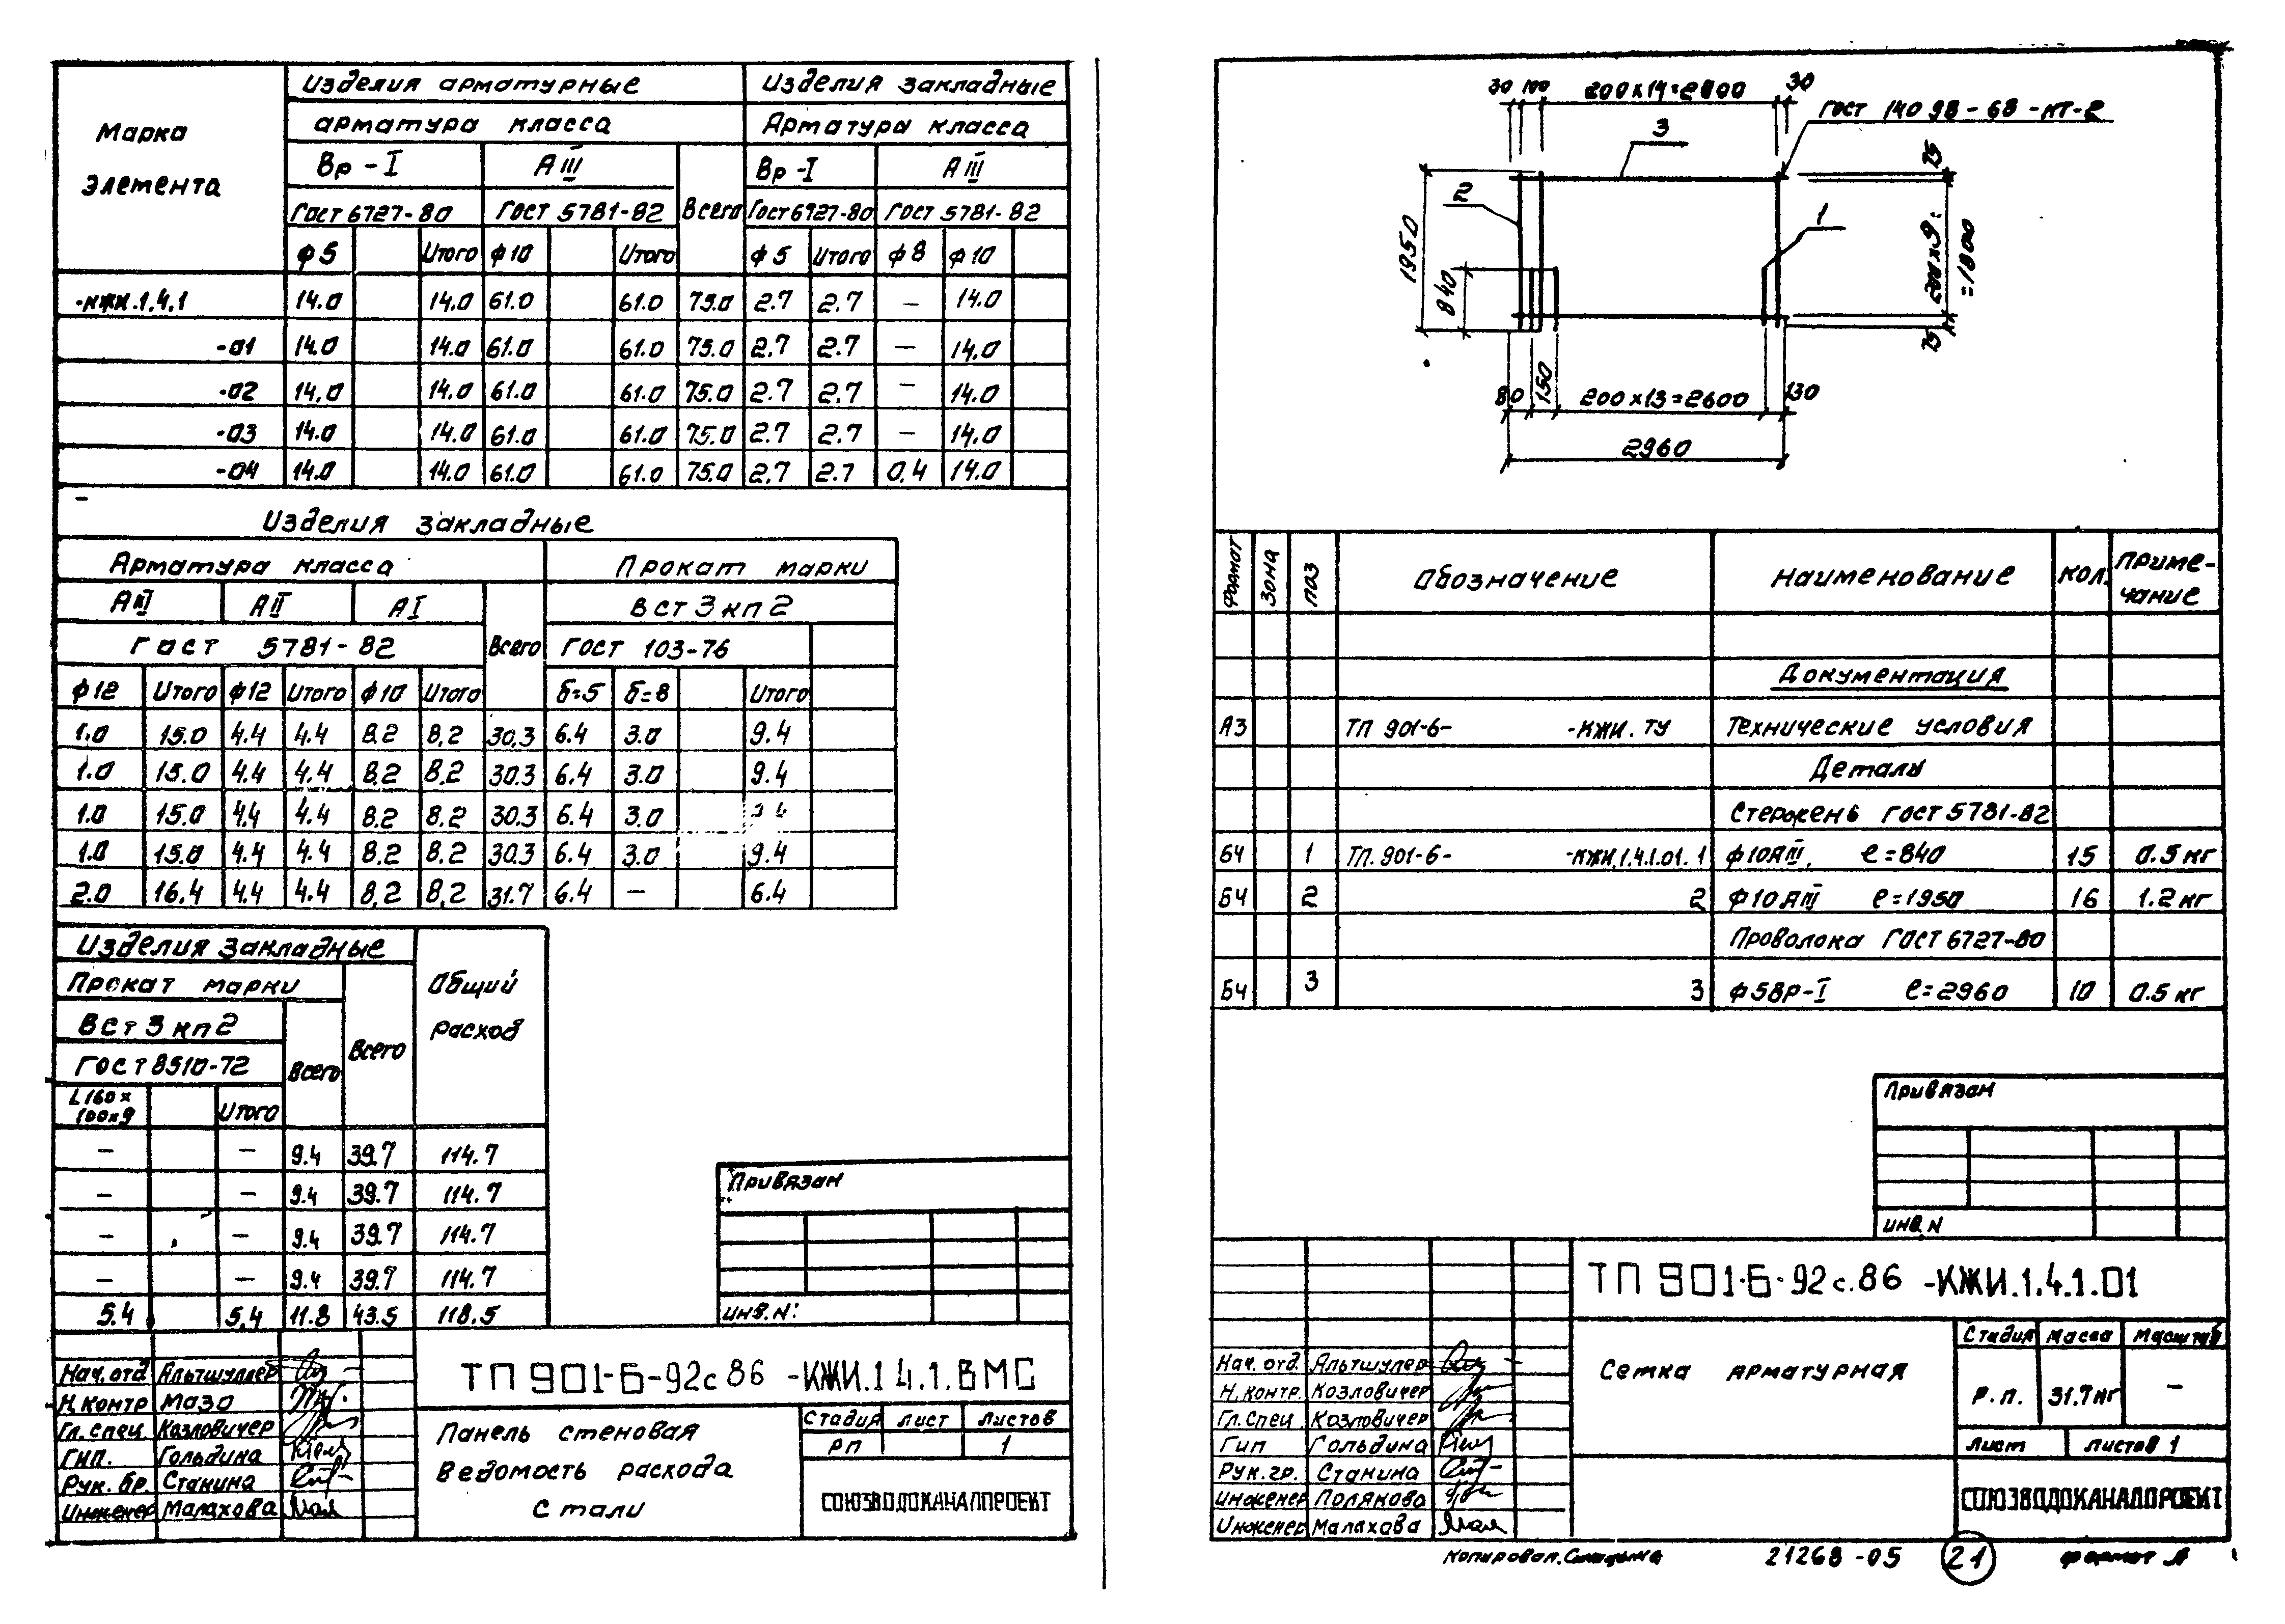 Марка элемента
Изделия арматурные
Изделия закладные
арматура класса
Арматура класса
Вр-I
А III
Всего
Вр-I
А III
Гост 6727-80
Гост 5781-82
Гост 6727-80
Гост 5781-82
ф5 Итого ф10 Итого ф5 Итого ф8 ф10
-КЖИ.1.4.1 14.0 14.0 61.0 61.0 75.0 2.7 2.7 — 14.0
-01 14.0 14.0 61.0 61.0 75.0 2.7 2.7 — 14.0
-02 14.0 14.0 61.0 61.0 75.0 2.7 2.7 — 14.0
-03 14.0 14.0 61.0 61.0 75.0 2.7 2.7 — 14.0
-04 14.0 14.0 61.0 61.0 75.0 2.7 2.7 0.4 14.0
Изделия закладные
Арматура класса
Прокат марки
А III А II А I
Всего
Вст3кп2
Гост 5781-82
Гост 103-76
ф12 Итого ф12 Итого ф10 Итого б=5 б=8 Итого
1.0 15.0 4.4 4.4 8.2 8.2 30.3 6.4 3.0 9.4
1.0 15.0 4.4 4.4 8.2 8.2 30.3 6.4 3.0 9.4
1.0 15.0 4.4 4.4 8.2 8.2 30.3 6.4 3.0
1.0 15.0 4.4 4.4 8.2 8.2 30.3 6.4 3.0 9.4
2.0 16.4 4.4 4.4 8.2 8.2 31.7 6.4 — 6.4
Изделия закладные
Общий расход
Прокат марки
Всего
Вст3кп2
Всего
Гост 8510-72
L160×100×9 Итого
— — 9.4 39.7 114.7
— — 9.4 39.7 114.7
— — 9.4 39.7 114.7
— — 9.4 39.7 114.7
5.4 5.4 11.8 43.5 118.5
Привязан
инв.N:
Нач.отд Альтшуллер
Н.контр Мазо
Гл.спец. Козловичер
ГИП. Гольдина
Рук.бр. Станина
Инженер Малахова
ТП 901-6-92с86 -КЖИ.1 4.1.ВМС
Панель стеновая
Ведомость расхода
стали
Стадия лист листов
РП 1
СОЮЗВОДОКАНАЛПРОЕКТ
30 100 200×14=2800 30
Гост 14098-68-КТ-2
3
2
1
1950
840
75
200×9=
=1800
75
80 150 200×13=2600 130
2960
Формат Зона Поз Обозначение Наименование Кол. Примечание
Документация
А3 ТП 901-6- -КЖИ.ТУ Технические условия
Детали
Стержень Гост 5781-82
БЧ 1 ТП.901-6- -КЖИ.1.4.1.01.1 ф10АIII, ℓ=840 15 0.5 кг
БЧ 2 2 ф10АIII ℓ=1950 16 1.2 кг
Проволока Гост 6727-80
БЧ 3 3 ф5ВР-I ℓ=2960 10 0.5 кг
Привязан
инв.N
ТП 901-6-92с.86 -КЖИ.1.4.1.01
Нач.отд. Альтшулер
Н.контр. Козловичер
Гл.спец. Козловичер
Гип Гольдина
Рук.гр. Станина
Инженер Полякова
Инженер Малахова
Сетка арматурная
Стадия Масса Масштаб
Р.П. 31.7кг —
лист листов 1
СОЮЗВОДОКАНАЛПРОЕКТ
Копировал.
21268-05
21
формат А